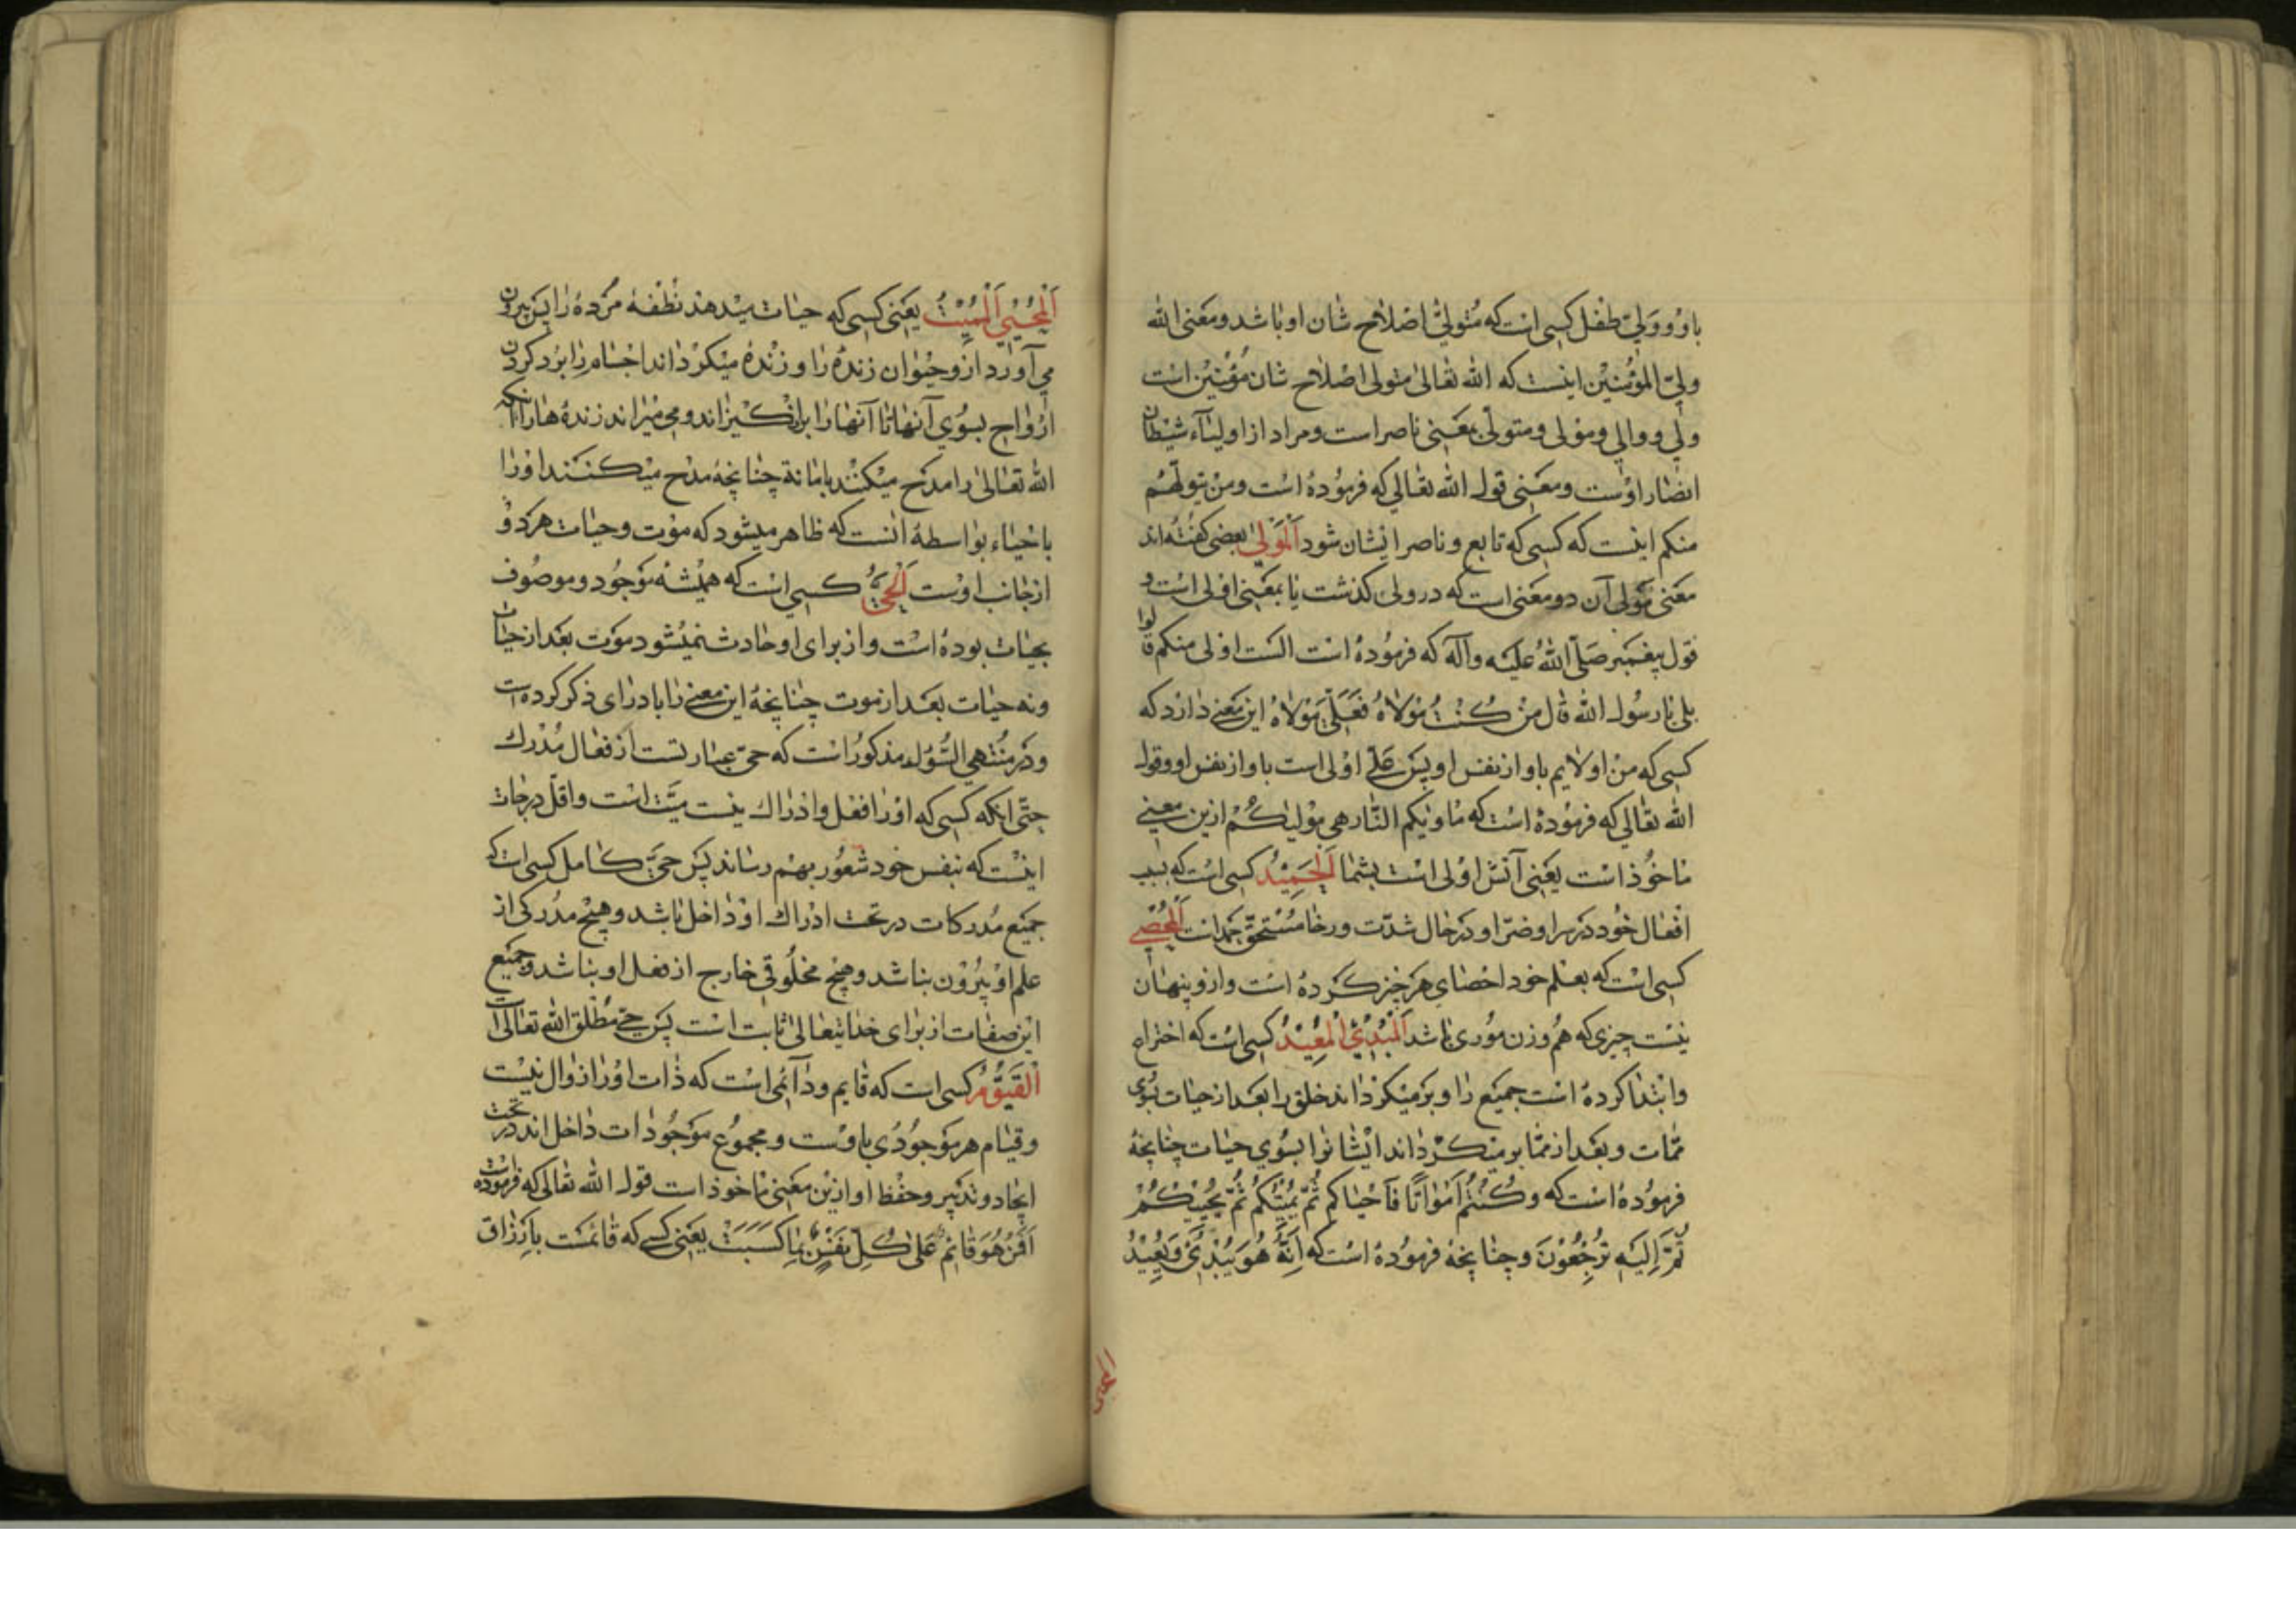 باو و ولیّ طفل کسی است که متولّی اصلاح شان او باشد و معنی الله
ولیّ المؤمنین اینست که الله تعالی متولی اصلاح شان مؤمنین است
ولی و والی و مولی و متولّی بمعنی ناصر است و مراد از اولیآء شیطان
انصار اوست و معنی قول الله تعالی که فرموده است ومن یتولّهم
منکم اینست که کسی که تابع و ناصر ایشان شود اَلْمَوْلیٰ بعضی گفته‌اند
معنی مولی آن دو معنی است که در ولی گذشت یا بمعنی اولی است و
قول پیغمبر صَلّی اللهُ علیه وآله که فرموده است الست اولی منکم قالوا
بلی یا رسول الله قال من کُنْتُ مَوْلاهُ فَعَلَیٌّ مَوْلاهُ این معنی دارد که
کسی که من اولایم باو از نفس او پس عَلی اولی است باو از نفس او و قول
الله تعالی که فرموده است که ماویکم النّار هی مولیٰکُمْ ازین معنی
ماخوذ است یعنی آتش اولی است بشما اَلْحَمِیْدُ کسی است که بسبب
افعال خود در سرا و ضرّا و در حال شدّت و رخا مستحقّ حمد است اَلْمُحْصِی
کسی است که بعلم خود احصای هر چیز کرده است و ازو پنهان
نیست چیزی که هم وزن موری باشد اَلْمُبْدِئُ الْمُعِیْدُ کسی است که اختراع
وابتدا کرده است جمیع را و برمیگرداند خلق را بعد از حیات بسوی
ممات و بعد از ممات برمیگرداند ایشانرا بسوی حیات چنانچه
فرموده است که وَکُنْتُمْ اَمْوَاتًا فَاَحْیَاکم ثُمَّ یُمِیْتُکُمْ ثُمَّ یُحْیِیْکُمْ
ثُمَّ اِلَیْهِ تُرْجَعُوْنَ و چنانچه فرموده است که اِنَّهُ هُوَ یُبْدِئُ وَیُعِیْدُ
اَلْمُحْیِیْ اَلْمُمِیْتُ یعنی کسی که حیات میدهد نطفهٔ مرده را پس بیرون
می‌آورد ازو حیوان زنده را و زنده میگرداند اجسام را برد کردن
ارواح بسوی آنها تا آنها را برانگیزاند و می‌میراند زنده‌ها را آنکه
الله تعالی را مدح میکنند باماته چنانچه مدح میکنند اورا
باحیاء بواسطهٔ آنست که ظاهر میشود که موت و حیات هر دو
از جانب اوست اَلْحَیُّ کسی است که همیشه موجود و موصوف
بحیات بوده است و از برای او حادث نمیشود موت بعد از حیات
و نه حیات بعد از موت چنانچه این معنی را بادرای ذکر کرده است
و در منتهی السّؤل مذکور است که حیّ عبارتست از فعّال مُدْرِک
حتّی آنکه کسی که اورا فعل و ادراک نیست میّت است و اقلّ درجات
اینست که بنفس خود شعور بهم رساند پس حیّ کامل کسی است که
جمیع مدرکات در تحت ادراک او داخل باشد و هیچ مدرکی از
علم او بیرون نباشد و هیچ مخلوقی خارج از فعل او نباشد و جمیع
این صفات از برای خدایتعالی ثابت است پس حیّ مُطْلَق الله تعالی است
اَلْقَیُّوْمُ کسی است که قایم و دآئمی است که ذات اورا زوال نیست
و قیام هر موجودی باوست و مجموع موجودات داخل‌اند در تحت
ایجاد و تدبیر و حفظ او ازین معنی ماخوذ است قول الله تعالی که فرموده است
اَفَمَنْ هُوَ قَائِمٌ عَلیٰ کُلِّ نَفْسٍ بِمَا کَسَبَتْ یعنی کسی که قائمست بارزاق